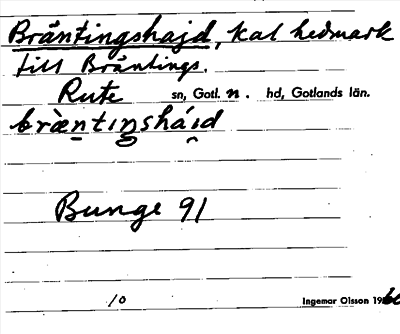 Bräntingshajd, kal hedmark
till Bräntings.
Rute sn, Gotl. n. hd, Gotlands län.
bràntıŋsháıd
Bunge 91
10 Ingemar Olsson 1960